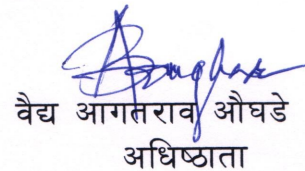 वैद्य आगतराव औघडे
अधिष्ठाता